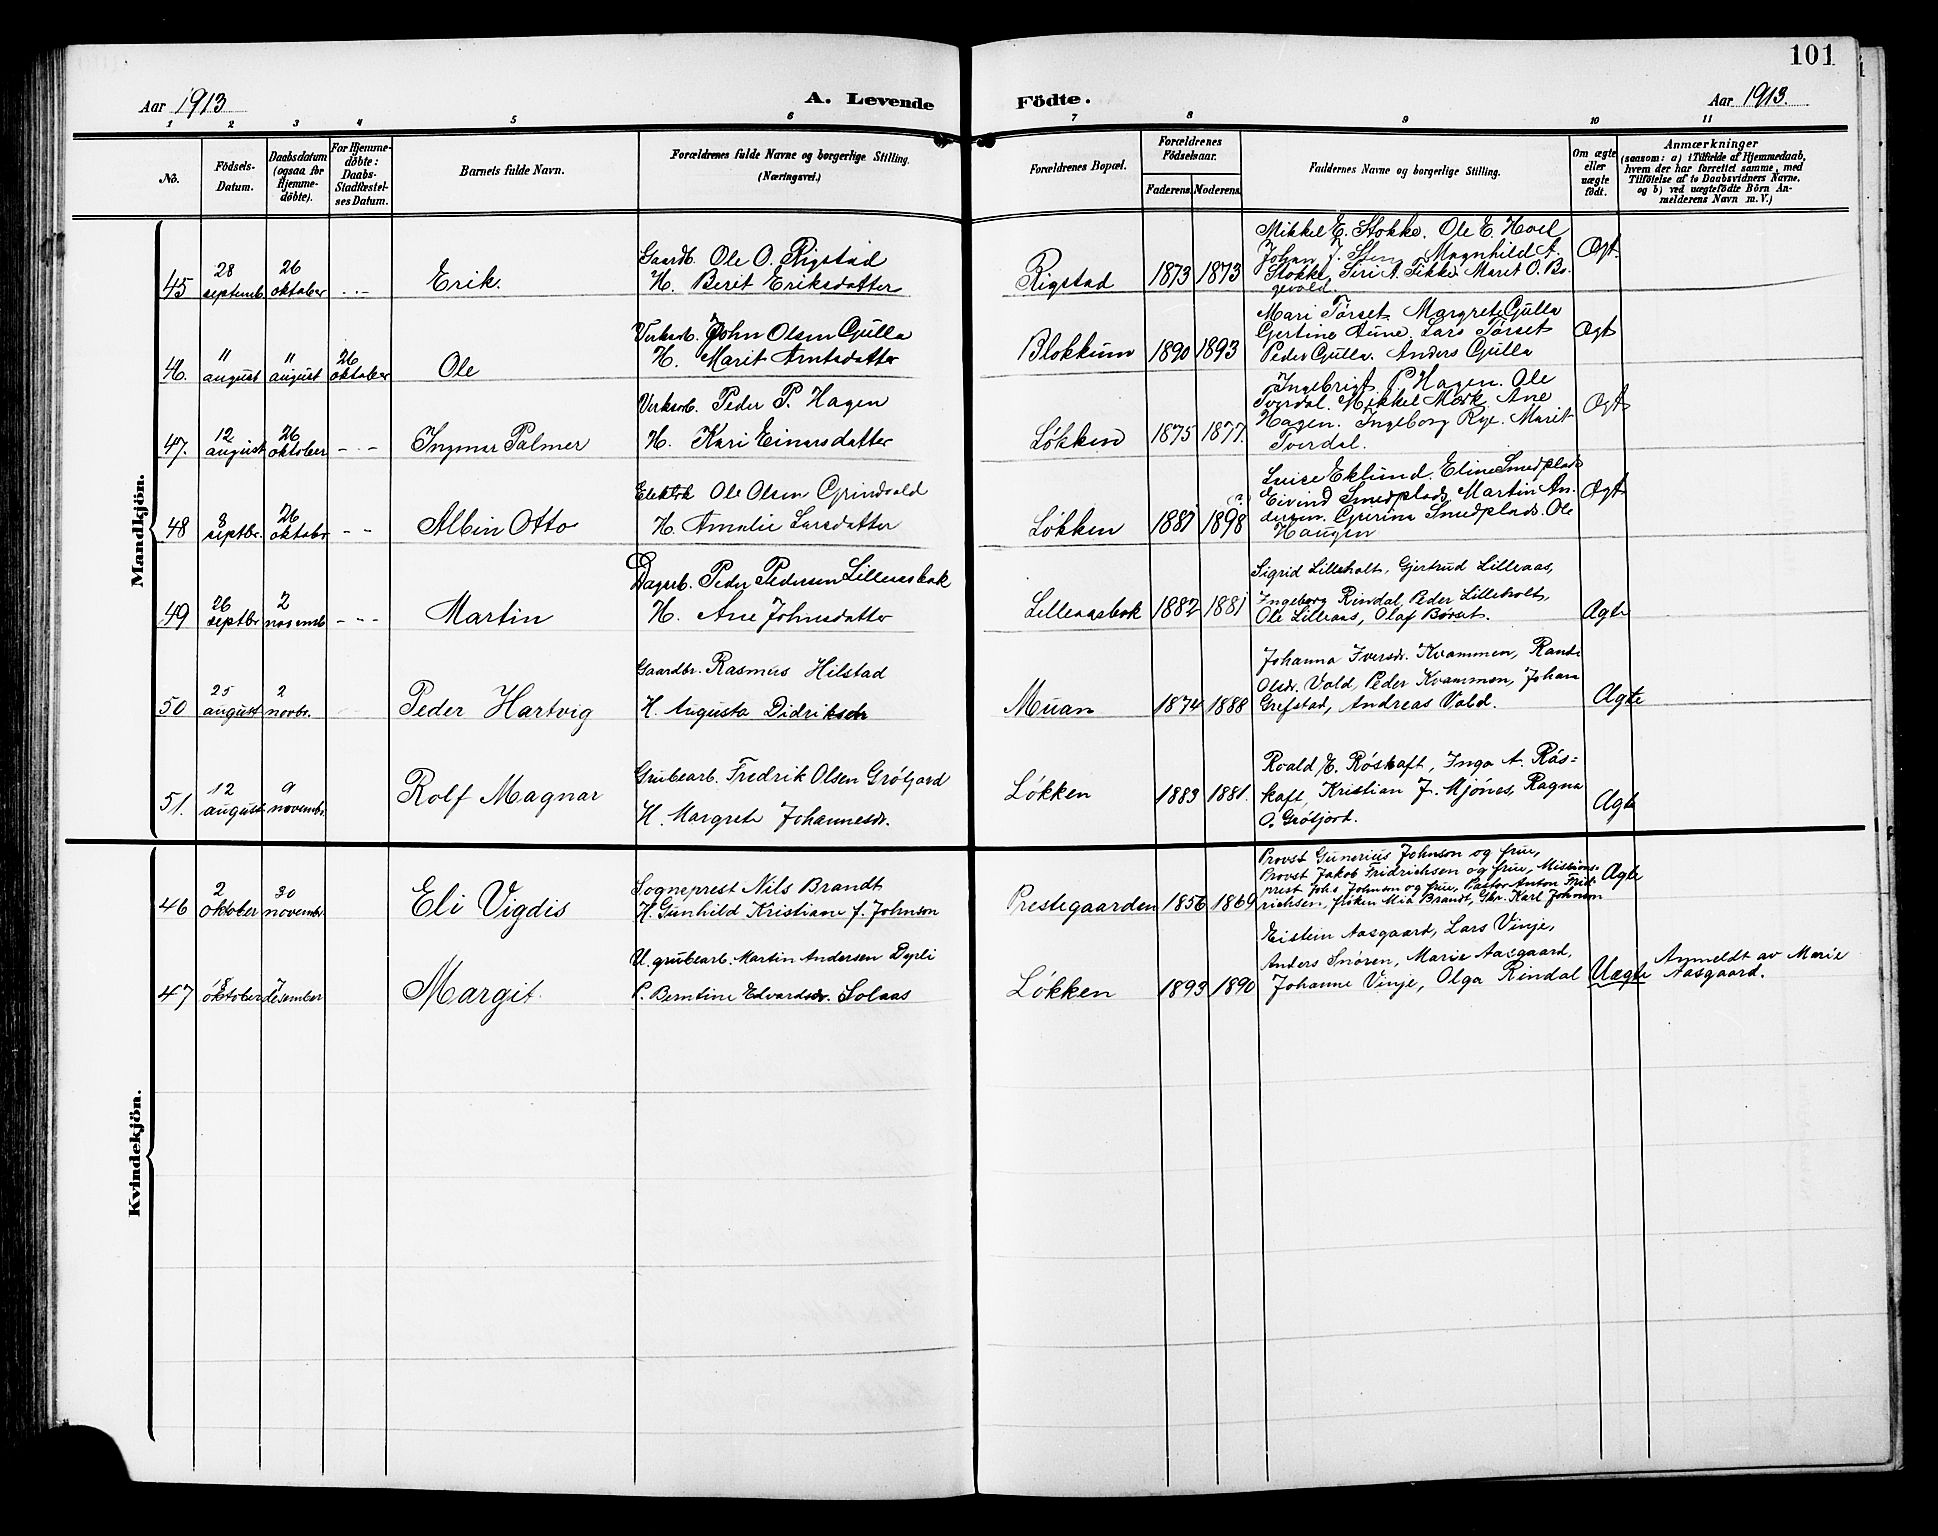 101
Aar 1913
A. Levende
Födte.
Aar 1913.
1 2 3 4 5 6 7 8 9 10 11
No.
Födsels-
Datum.
Daabsdatum
(ogsaa for
Hjemme-
döbte).
For Hjemme-
döbte:
Daabs-
Stadfæstel-
ses Datum.
Barnets fulde Navn.
Forældrenes fulde Navne og borgerlige Stilling.
(Næringsvei.)
Forældrenes Bopæl.
Forældrenes
Födselsaar.
Faderens. Moderens.
Faddernes Navne og borgerlige Stilling.
Om ægte
eller
uægte
födt.
Anmærkninger
(saasom: a) i Tilfælde af Hjemmedaab,
hvem der har forrettet samme, med
Tilföielse af to Daabsvidners Navne,
og b) ved uægtefödte Börn An-
melderens Navn m. V.)
Mandkjön.
45
28
septemb.
26
oktober
- - -
Erik.
Gaardb. Ole O. Rigstad
H. Berit Eriksdatter
Rigstad
1873
1873
Mikkel E. Stokke. Ole E. Hoel
Johan J. Sten, Magnhild A.
Stokke, Siri A. Fikke. Marit O. Bo-
gevold.
Ægt.
46.
11
august
11
august
26
oktober
Ole
Verksarb. John Olsen Gjulla
H. Marit Arntsdatter
Blokkum
1890
1893
Mari Törset, Margrete Gjulla
Gjertine Aune, Lars Törset
Peder Gjulla. Anders Gjulla
Ægt
47.
12
august
26
oktober
- - -
Ingmar Palmer
Verksarb. Peder P. Hagen
H. Kari Einarsdatter
Løkken
1875
1877.
Ingebrigt P. Hagen. Ole
Tverdal. Mikkel Mærk. Ane
Hagen. Ingeborg Rye. Marit
Tverdal.
Ægt
48
8
septbr.
26
oktobr
- -
Albin Otto
Elektrik Ole Olsen Grindvold
H. Amalie Larsdatter
Løkken
1887
1898
(?)
Luise Eklund. Eline Smedplads
Eivind Smedplads, Martin An-
dersen. Gurina Smedplads. Ole
Haugen
Ægt
49
26
septbr
2
novemb
- - -
Martin
Dagarb. Peder Pedersen Lilleaasbak
H. Ane Johnsdatter
Lilleaasbak
1882
1881
Sigrid Lilleholt, Gjertrud Lilleaas,
Ingeborg Rindal, Peder Lilleholt,
Ole Lilleaas, Olaf Börset.
Ægte
50
25
august
2
novbr.
Peder Hartvig
Gaardbr. Rasmus Hilstad
H. Augusta Didriksdr
Muan
1874
1888
Johanna Iversdr. Kvammen, Randi
Olsdr. Vold, Peder Kvammen, Johan
Grefstad, Andreas Vold.
Ægte
51.
12
august
9
novembr.
Rolf Magnar
Grubearb. Fredrik Olsen Gröfjord
H. Margrete Johannesdr.
Løkken
1883
1881.
Roald E. Röskaft, Inga A. Rös-
kaft, Kristian J. Mjönes, Ragna
O. Gröfjord.
Ægte
Kvindekjön.
46
2
oktober
30
novembr.
Eli Vigdis
Sogneprest Nils Brandt
H. Gunhild Kristiane f. Johnson
Prestegaarden
1856
1869
Provst Gunerius Johnson og frue,
Provst Jakob Fridrichsen og frue, Missions-
prest Johs Johnson og frue, Pastor Anton Frid-
richsen, fröken Mia Brandt, Ghr. Karl Johnson
Ægte
47
oktober
7
desember
Margit.
U. grubearb. Martin Andersen Dypli
P. Berntine Edvardsdr. Solaas
Løkken
1893
1890
Eistein Aasgaard, Lars Vinje,
Anders Snören, Marie Aasgaard,
Johanne Vinje, Olga Rindal
Uægte
Anmeldt av Marie
Aasgaard.